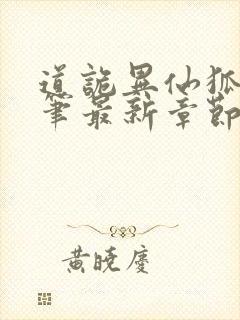 道詭異仙狐
筆最新章節
黄曉慶